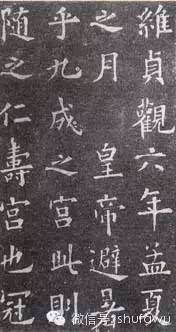 維貞觀六年孟夏
之月 皇帝避暑
乎九成之宮此則
随之仁壽宮也冠
微信号:shufawu